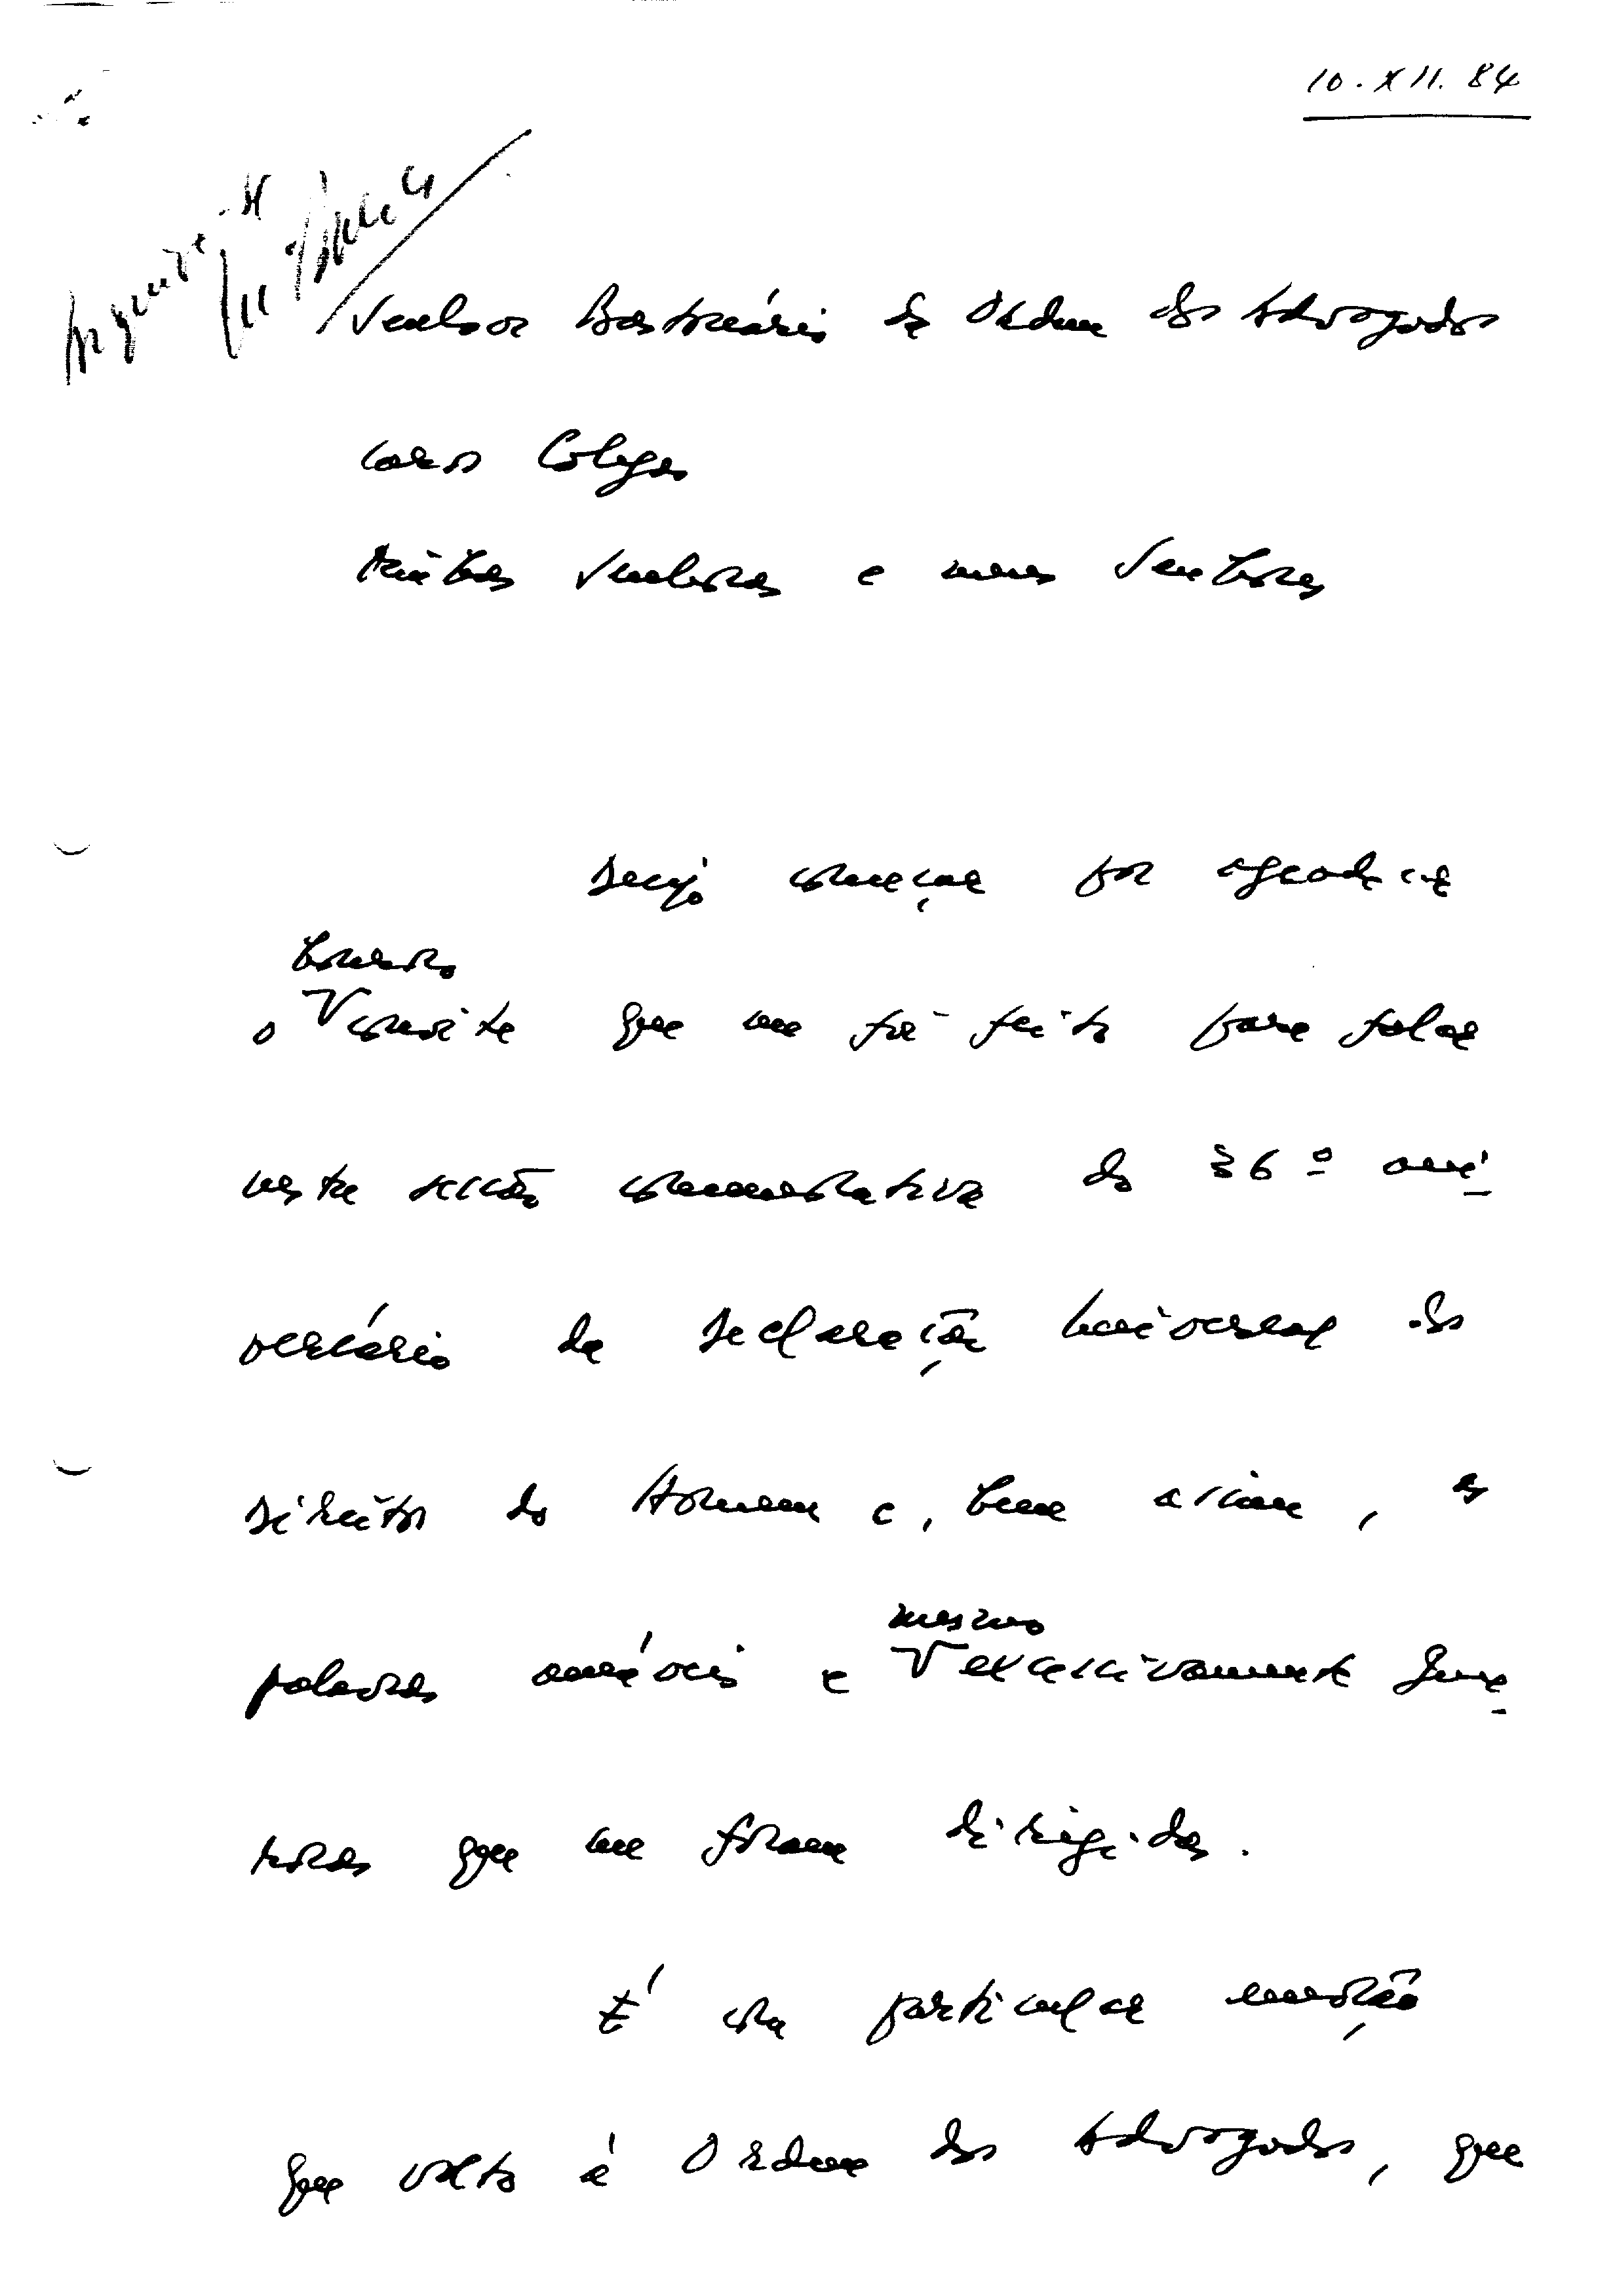 10.XII.84
Senhor Bastonário da Ordem dos Advogados
Caros Colegas
Minhas Senhoras e meus Senhores
Desejo começar por agradecer
honroso
o convite que me foi feito para falar
nesta sessão comemorativa do 36º ani-
versário da Declaração Universal dos
Direitos do Homem e, bem assim, as
mesmo
palavras amáveis e excessivamente gene-
rosas que me foram dirigidas.
É com particular emoção
que volto à Ordem dos Advogados, que